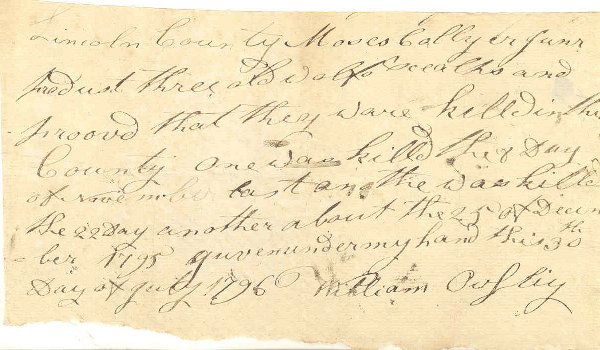 Lincoln County Moses Collyer Junr
produst three old wolfs scealps and
proovd that they ware killd in the
County one was killd the 8 Day
of november last and the was kille
the 22 Day another about the 25 of Decem
-ber 1795 guven under my hand this 30th
Day of July 1796 William